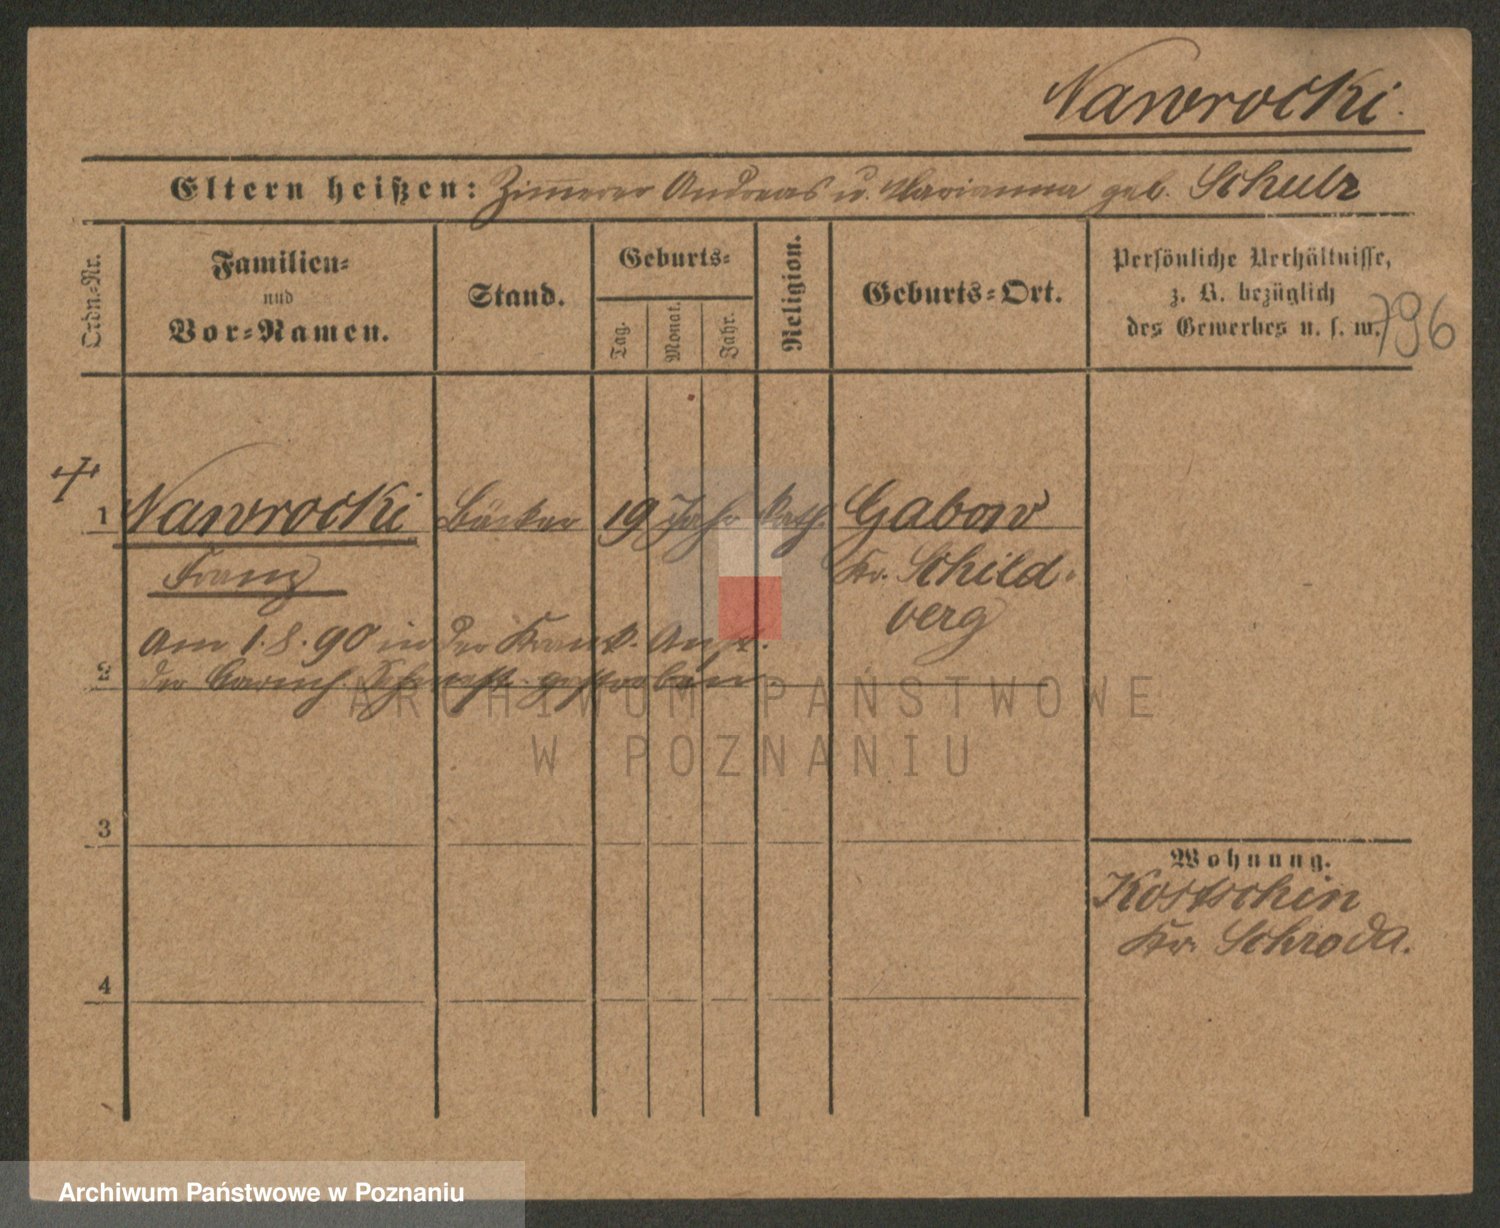 Nawrocki.
Eltern heißen: Zimmerer Andreas u. Marianna geb. Schulz
Ordn.-Nr.
Familien-
und
Vor-Namen.
Stand.
Geburts-
Tag.
Monat.
Jahr.
Religion.
Geburts-Ort.
Persönliche Verhältnisse,
z. B. bezüglich
des Gewerbes u. s. w.
796
1 Nawrocki Bäcker 19 Jahr kath. Gabow
Franz
Kr. Schild-
berg
Am 1.8.90 in der Krank. Anst.
2 der barmh. Schwest. gestorben.
3
4
Wohnung.
Kostschin
Kr. Schroda.
ARCHIWUM PAŃSTWOWE
W POZNANIU
Archiwum Państwowe w Poznaniu